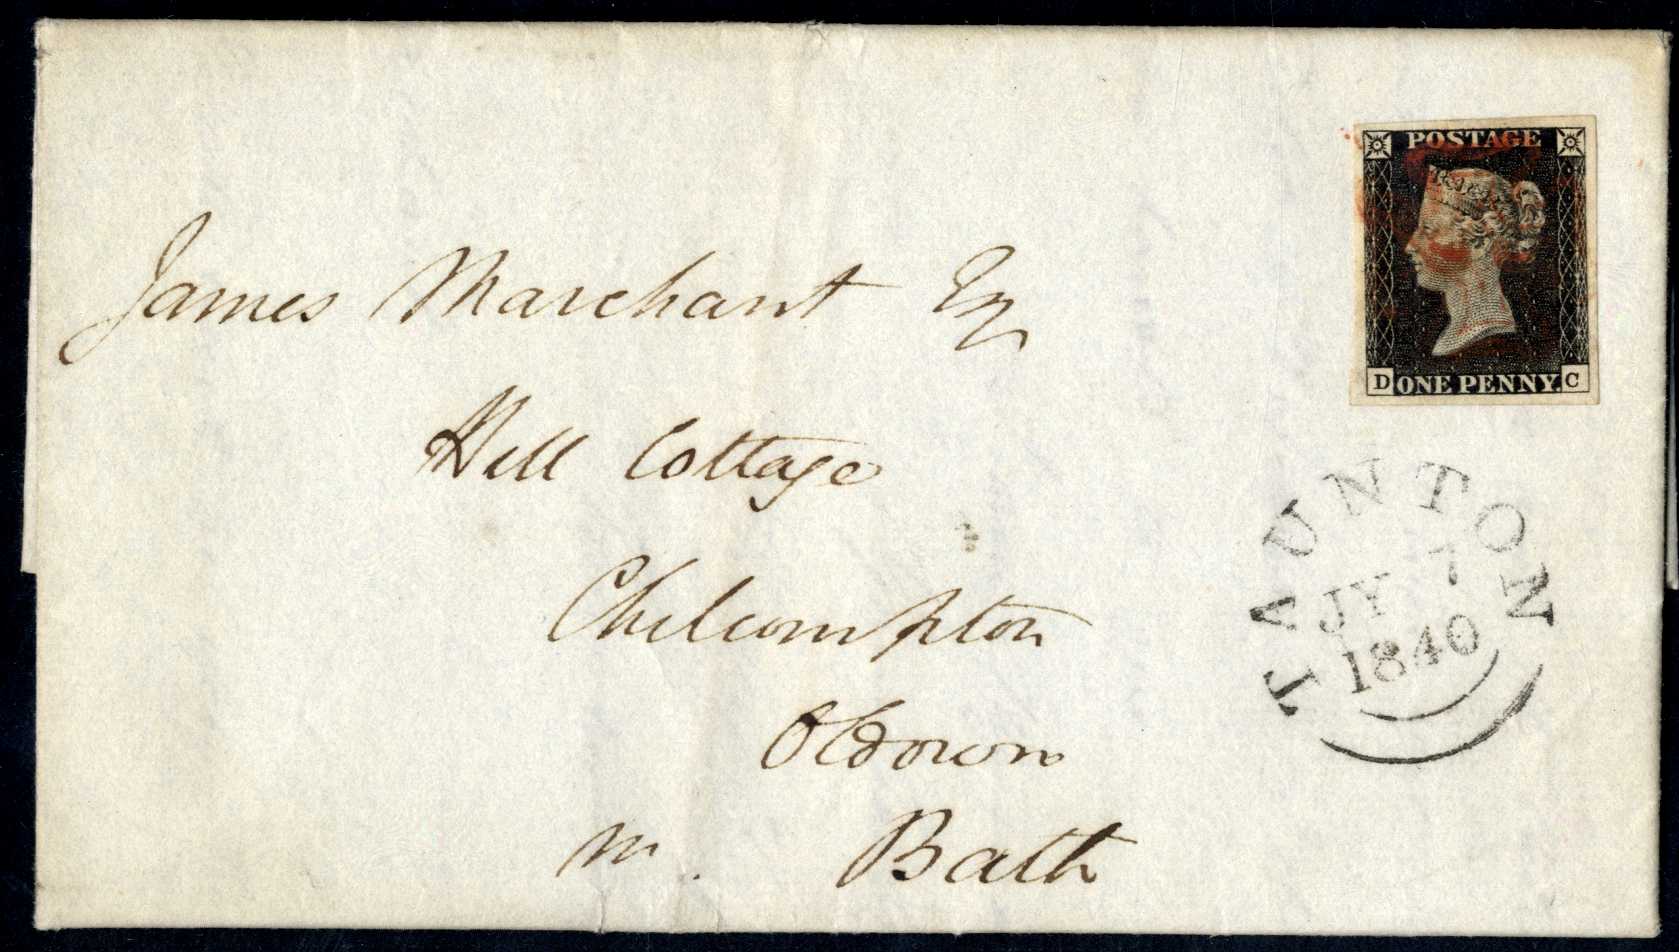 POSTAGE
D ONE PENNY. C
James Marchant Esq
Hill Cottage
Chilcompton
Oldown
nr. Bath
TAUNTON
JY 7
1840